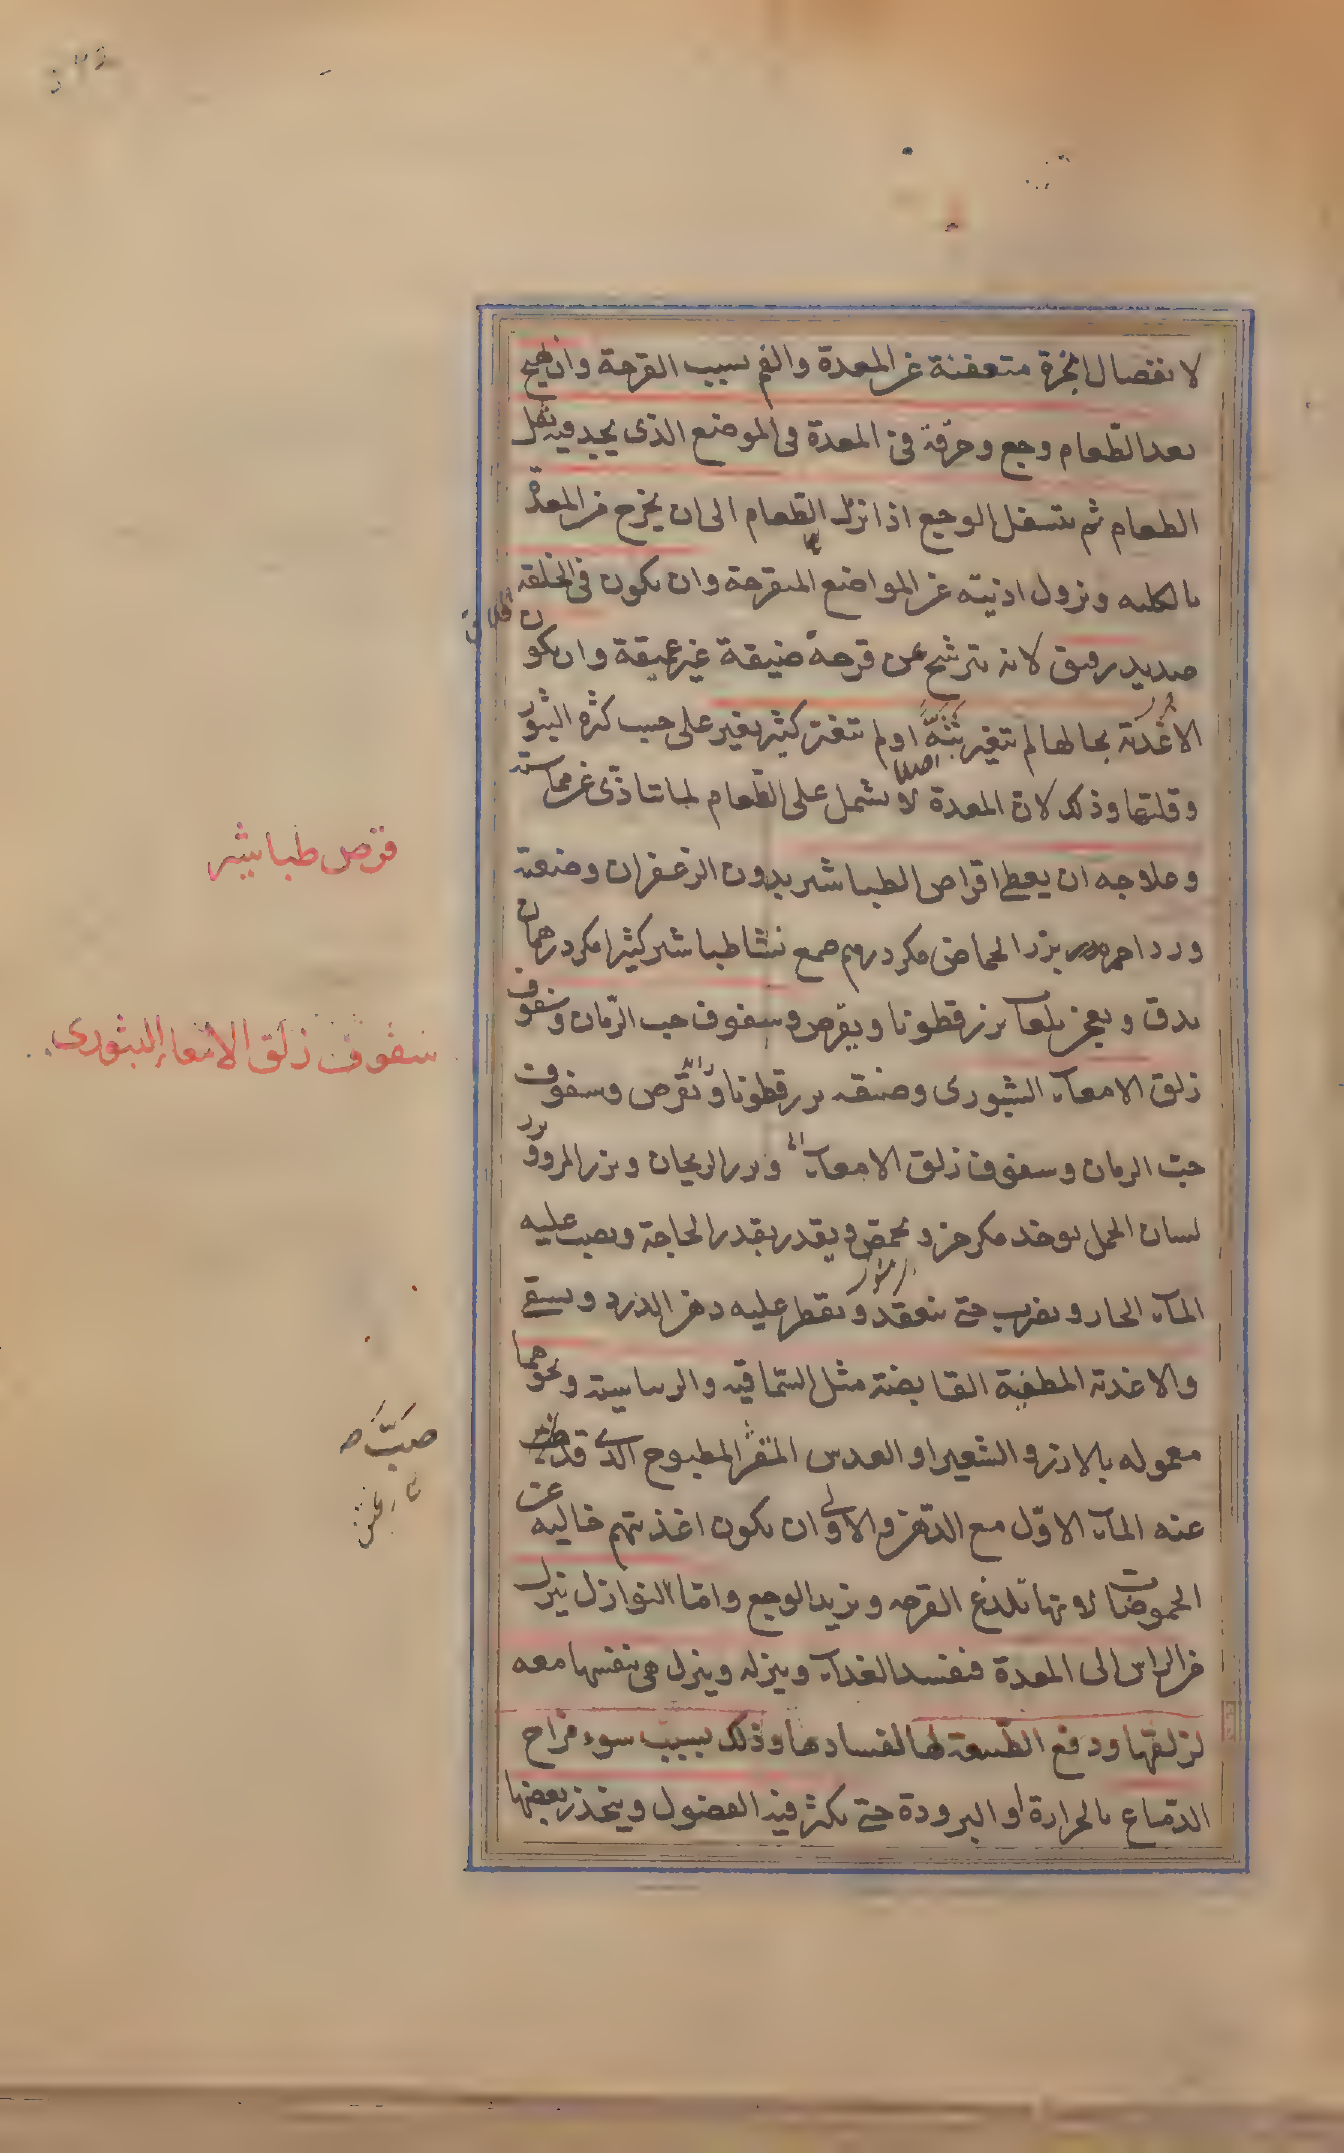 لانفصال ابخرة متعفنة عن المعدة والفم بسبب القرحة وان يهيج
بعد الطعام وجع وحرقة فى المعدة فى الموضع الذى يجد فيه ثقل
الطعام ثم يتسفل الوجع اذا نزل الطعام الى ان يخرج من المعدة
بالكليه ونزول اذيته عن المواضع المتقرحة وان يكون فى الخلفه
صديد رقيق لانه يترشح عن قرحة ضيقة غير عميقة وان يكون
الاغذية بحالها لم تتغير اصلا او لم تتغير كثير تغير على حسب كثرة البثور
وقلتها وذلك لان المعدة لا يشمل على الطعام لما تتاذى عن مماسته
وعلاجه ان يعطى اقراص الطباشير بدون الزعفران وصنعته
ورد احمر بزر الحماض مكد درهم صمغ نشا طباشير كثيرا مكد درهمان
يدق ويعجن بلعاب بزر قطونا ويقرص وسفوف حب الرمان وسفوف
ذلق الامعاء البثورى وصنعته بزر قطونا ويقرص وسفوف
حب الرمان وسفوف ذلق الامعاء وبزر الريحان وبزر المرو وبزر
لسان الحمل يوخذ مكد جزو يحمص ويقدر بقدر الحاجة ويصب عليه
الماء الحار ويضرب حتى ينعقد ويقطر عليه دهن الورد ويسقى
والاغذية المطفية القابضة مثل السماقيه والرساسية ونحوهما
معموله بالارز والشعير او العدس المقشر المطبوخ الذى قد صب
عنه الماء الاول مع الدهن والاولى ان يكون اغذيتهم خاليه عن
الحموضات لانها تلدغ القرحه وتزيد الوجع واما النوازل ينزل
من الراس الى المعدة فيفسد الغذاء وينزله وينزل هى بنفسها معه
لزلقها ودفع الطبيعة لها لفسادها وذلك بسبب سوء مزاج
الدماغ بالحرارة او البرودة حتى يكثر فيه الفضول وينحذر بعضها
قرص طباشير
سفوف ذلق الامعاء البثورى
صب